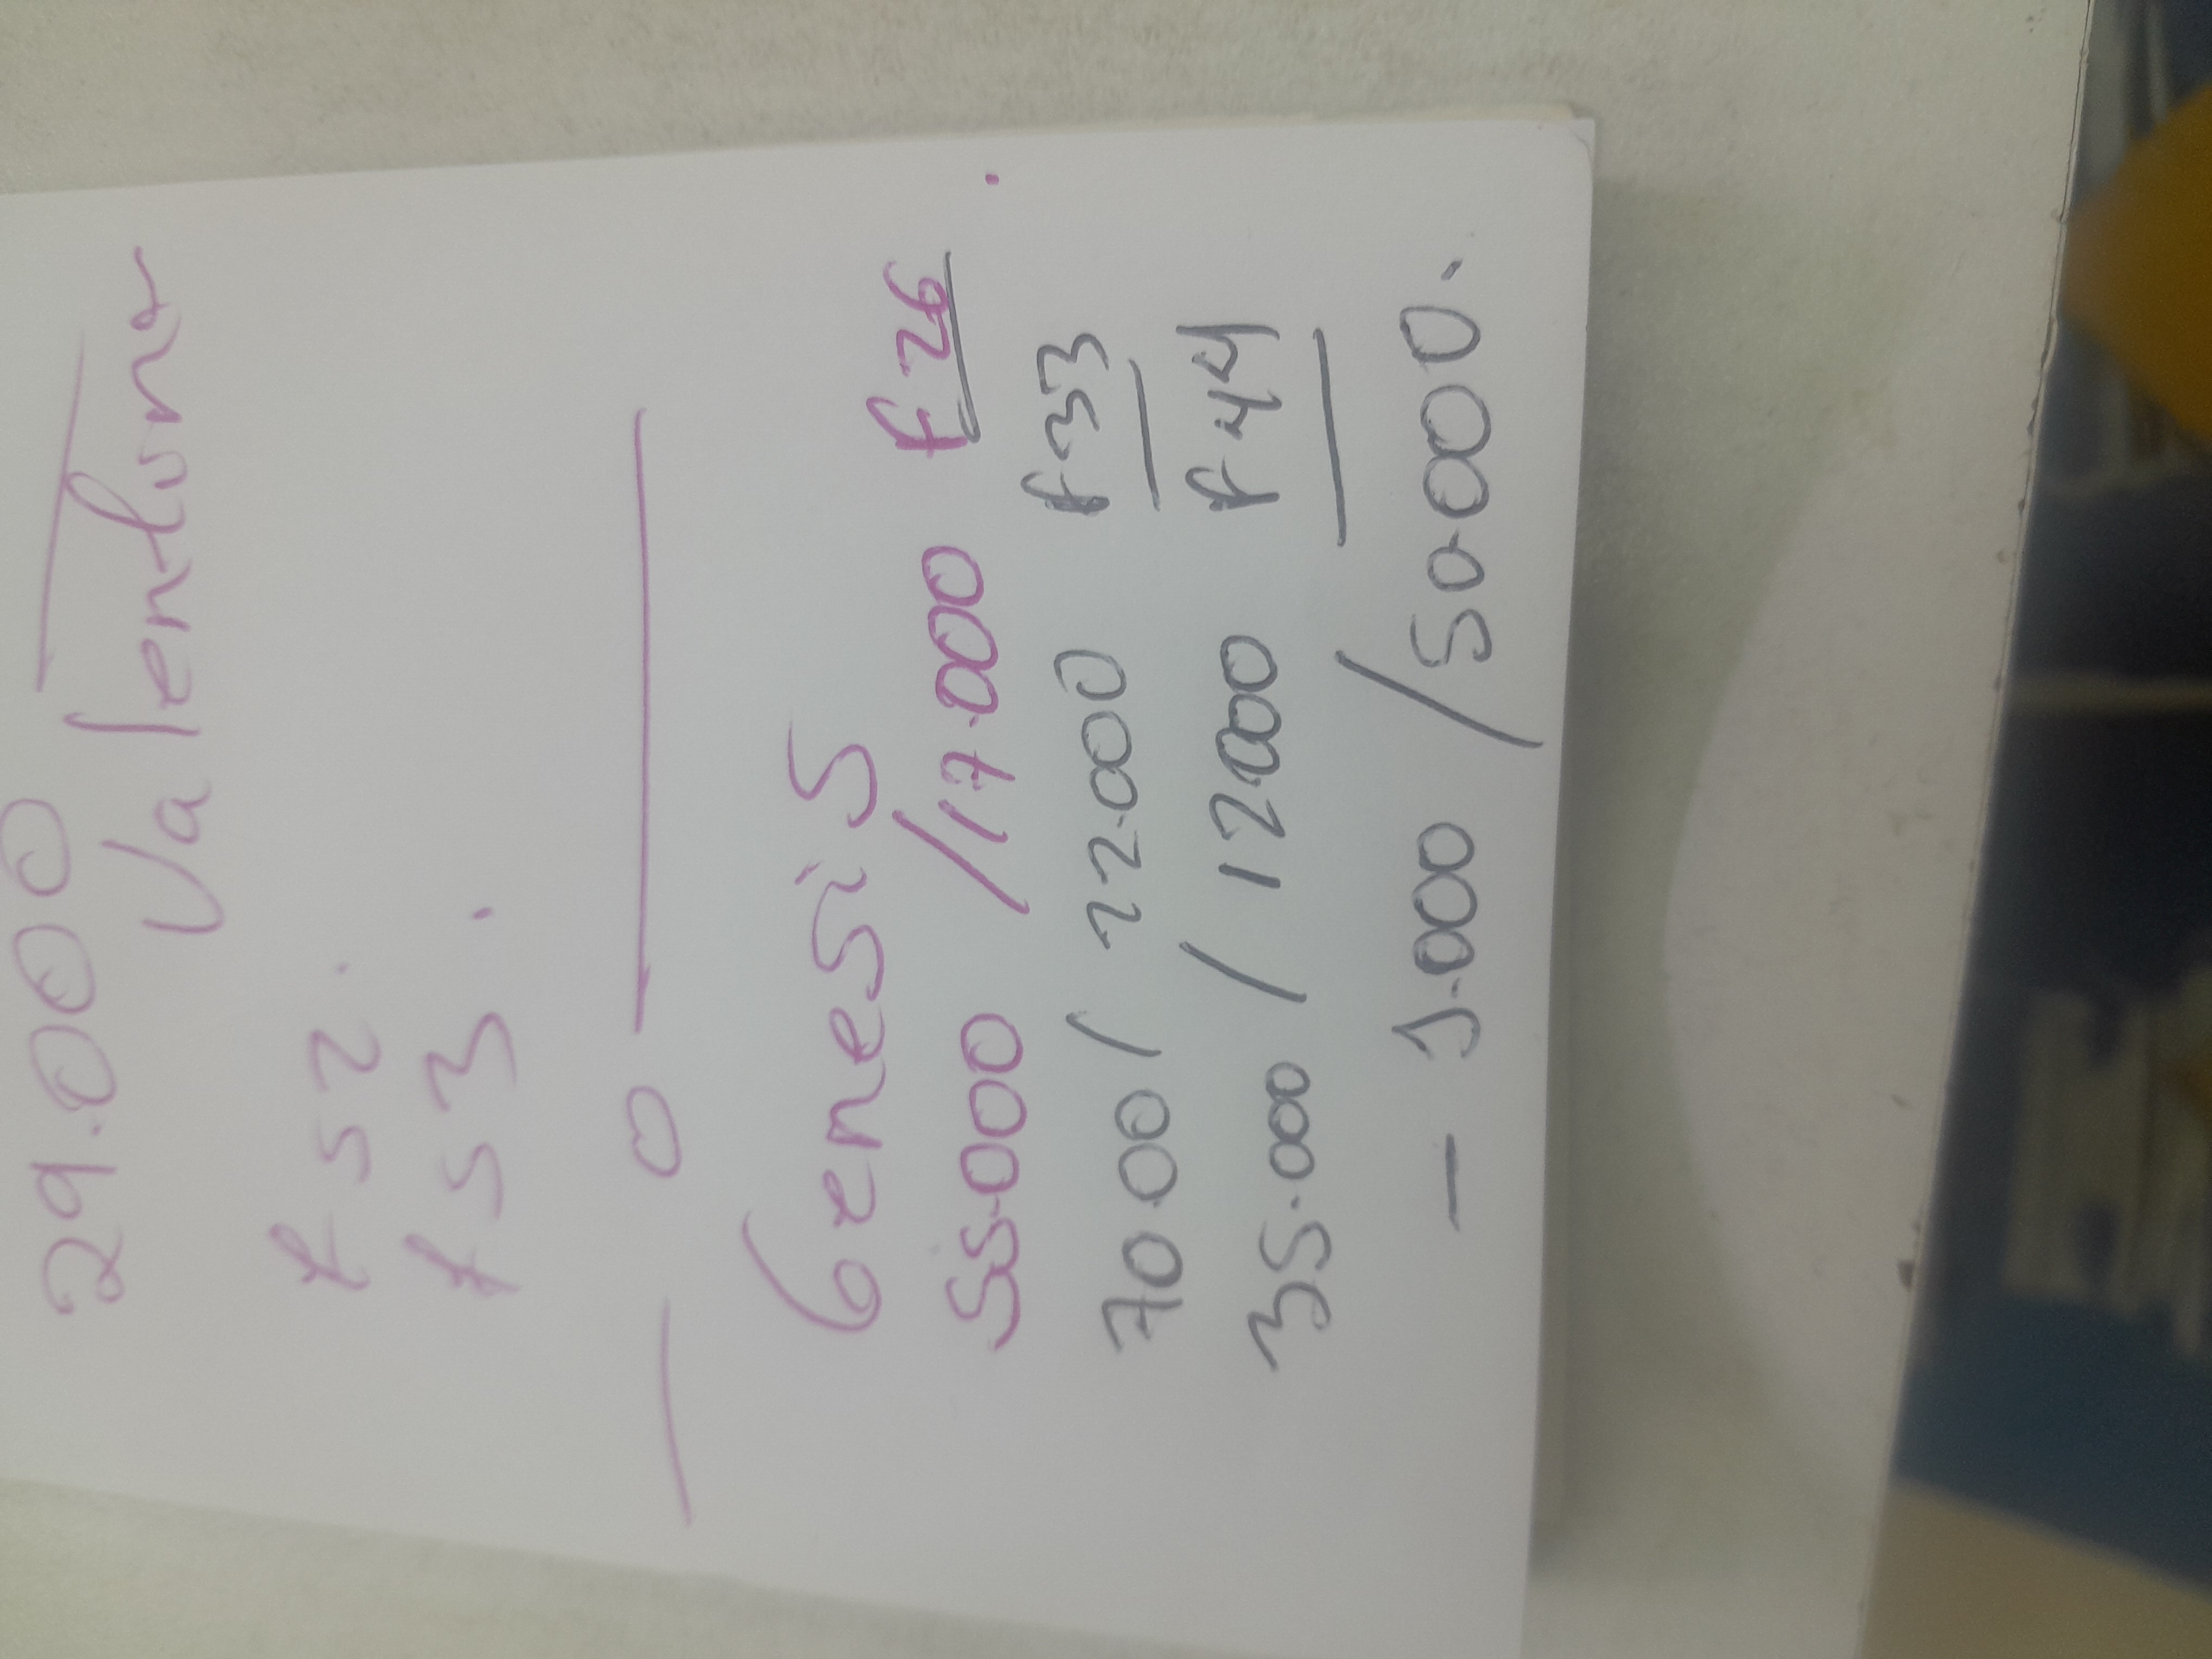 29.000
Valentina
f 52.
f 53.
— 0 —
Genesis
55.000 /17.000 F26.
70.00 / 22.000 F33
35.000 / 12.000 F44
- 1.000 /50.000.